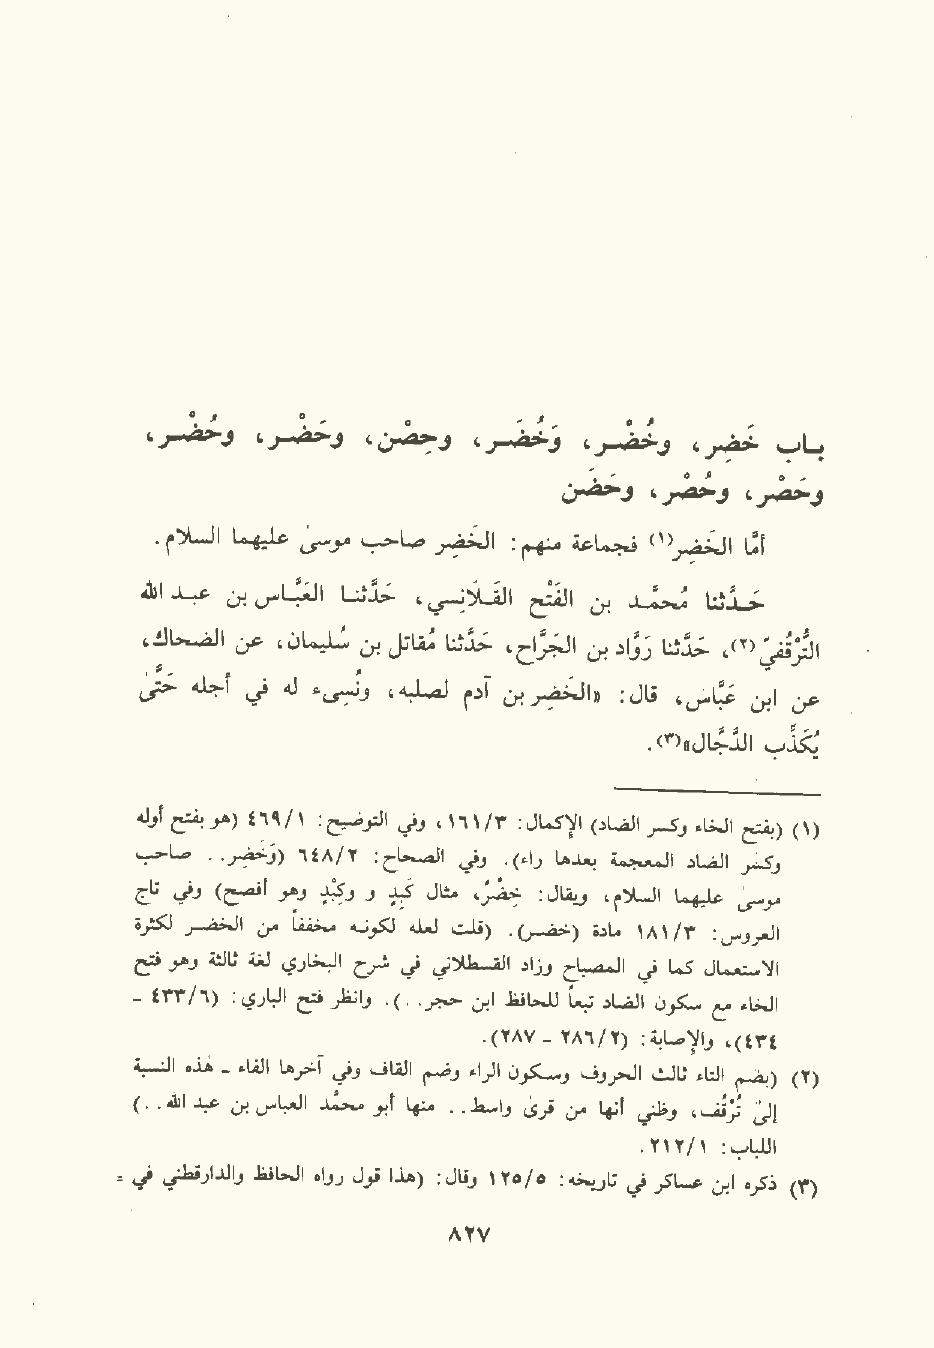 باب خَضِر، وخُضْـر، وَخُضَـر، وحِضْن، وحَضْر، وحُضْر،
وحَصْر، وحُصْر، وحَضَن
أمَّا الخَضِر(١) فجماعة منهم: الخَضِر صاحب موسىٰ عليهما السلام.
حَـدَّثنا مُحمَّـد بن الفَتْح القَـلَانِسـي، حَدَّثنـا العَبَّـاس بن عبـد الله
التُّرْقُفيّ(٢)، حَدَّثنا رَوَّاد بن الجَرَّاح، حَدَّثنا مُقاتل بن سُليمان، عن الضحاك،
عن ابن عبَّاس، قال: «الخَضِر بن آدم لصلبه، ونُسِىء له في أجله حَتَّى
يُكَذِّب الدَّجَّال»(٣).
(١) (بفتح الخاء وكسر الضاد) الإكمال: ٣/١٦١، وفي التوضيح: ١/٤٦٩ (هو بفتح أوله
وكسر الضاد المعجمة بعدها راء). وفي الصحاح: ٢/٦٤٨ (وَخَضِر.. صاحب
موسىٰ عليهما السلام، ويقال: خِضْرٌ، مثال كَبِدٍ و وكِبْدٍ وهو أفصح) وفي تاج
العروس: ٣/١٨١ مادة (خضر). (قلت لعله لكونه مخففاً من الخضر لكثرة
الاستعمال كما في المصباح وزاد القسطلاني في شرح البخاري لغة ثالثة وهو فتح
الخاء مع سكون الضاد تبعاً للحافظ ابن حجر. .). وانظر فتح الباري: (٦/٤٣٣ -
٤٣٤)، والإصابة: (٢/٢٨٦ - ٢٨٧).
(٢) (بضم التاء ثالث الحروف وسكون الراء وضم القاف وفي آخرها الفاء - هذه النسبة
إلىٰ تُرْقُف، وظني أنها من قرىٰ واسط.. منها أبو محمَّد العباس بن عبد الله. .)
اللباب: ١/٢١٢.
(٣) ذكره ابن عساكر في تاريخه: ٥/١٢٥ وقال: (هذا قول رواه الحافظ والدارقطني في =
٨٢٧